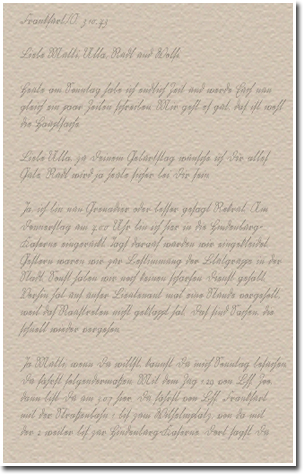 Frankfurt/O. 3.10.43
Liebe Mutti, Ulla, Rudl und Wolfi
Heute am Sonntag habe ich endlich Zeit und werde Euch nun
gleich ein paar Zeilen schreiben. Mir geht es gut, das ist wohl
die Hauptsache.
Liebe Ulla, zu Deinem Geburtstag wünsche ich Dir alles
Gute. Rudl wird ja heute sicher bei Dir sein.
Ja, ich bin nun Grenadier oder besser gesagt Rekrut. Am
Donnerstag um Uhr bin ich hier in die Hindenburg-
Kaserne eingerückt. Tags darauf wurden wir eingekleidet.
Gestern waren wir zur Bestimmung der Blutgruppe in der
Stadt. Sonst haben wir noch keinen scharfen Dienst gehabt.
hat uns unser Lieutenant mal eine Stunde vergessen,
weil das nicht geklappt hat. Das sind Sachen, die
schnell wieder vergehen.
Ja Mutti, wenn Du willst, kannst Du mich Sonntag besuchen.
Du fährst folgendermaßen: Mit dem Zug von
dann bist Du um Du fährst bis Frankfurt
mit der Straßenbahn 1 bis zum Wilhelmplatz, von da mit
der 2 weiter bis zur Hindenburg-Kaserne. Dort sagst Du